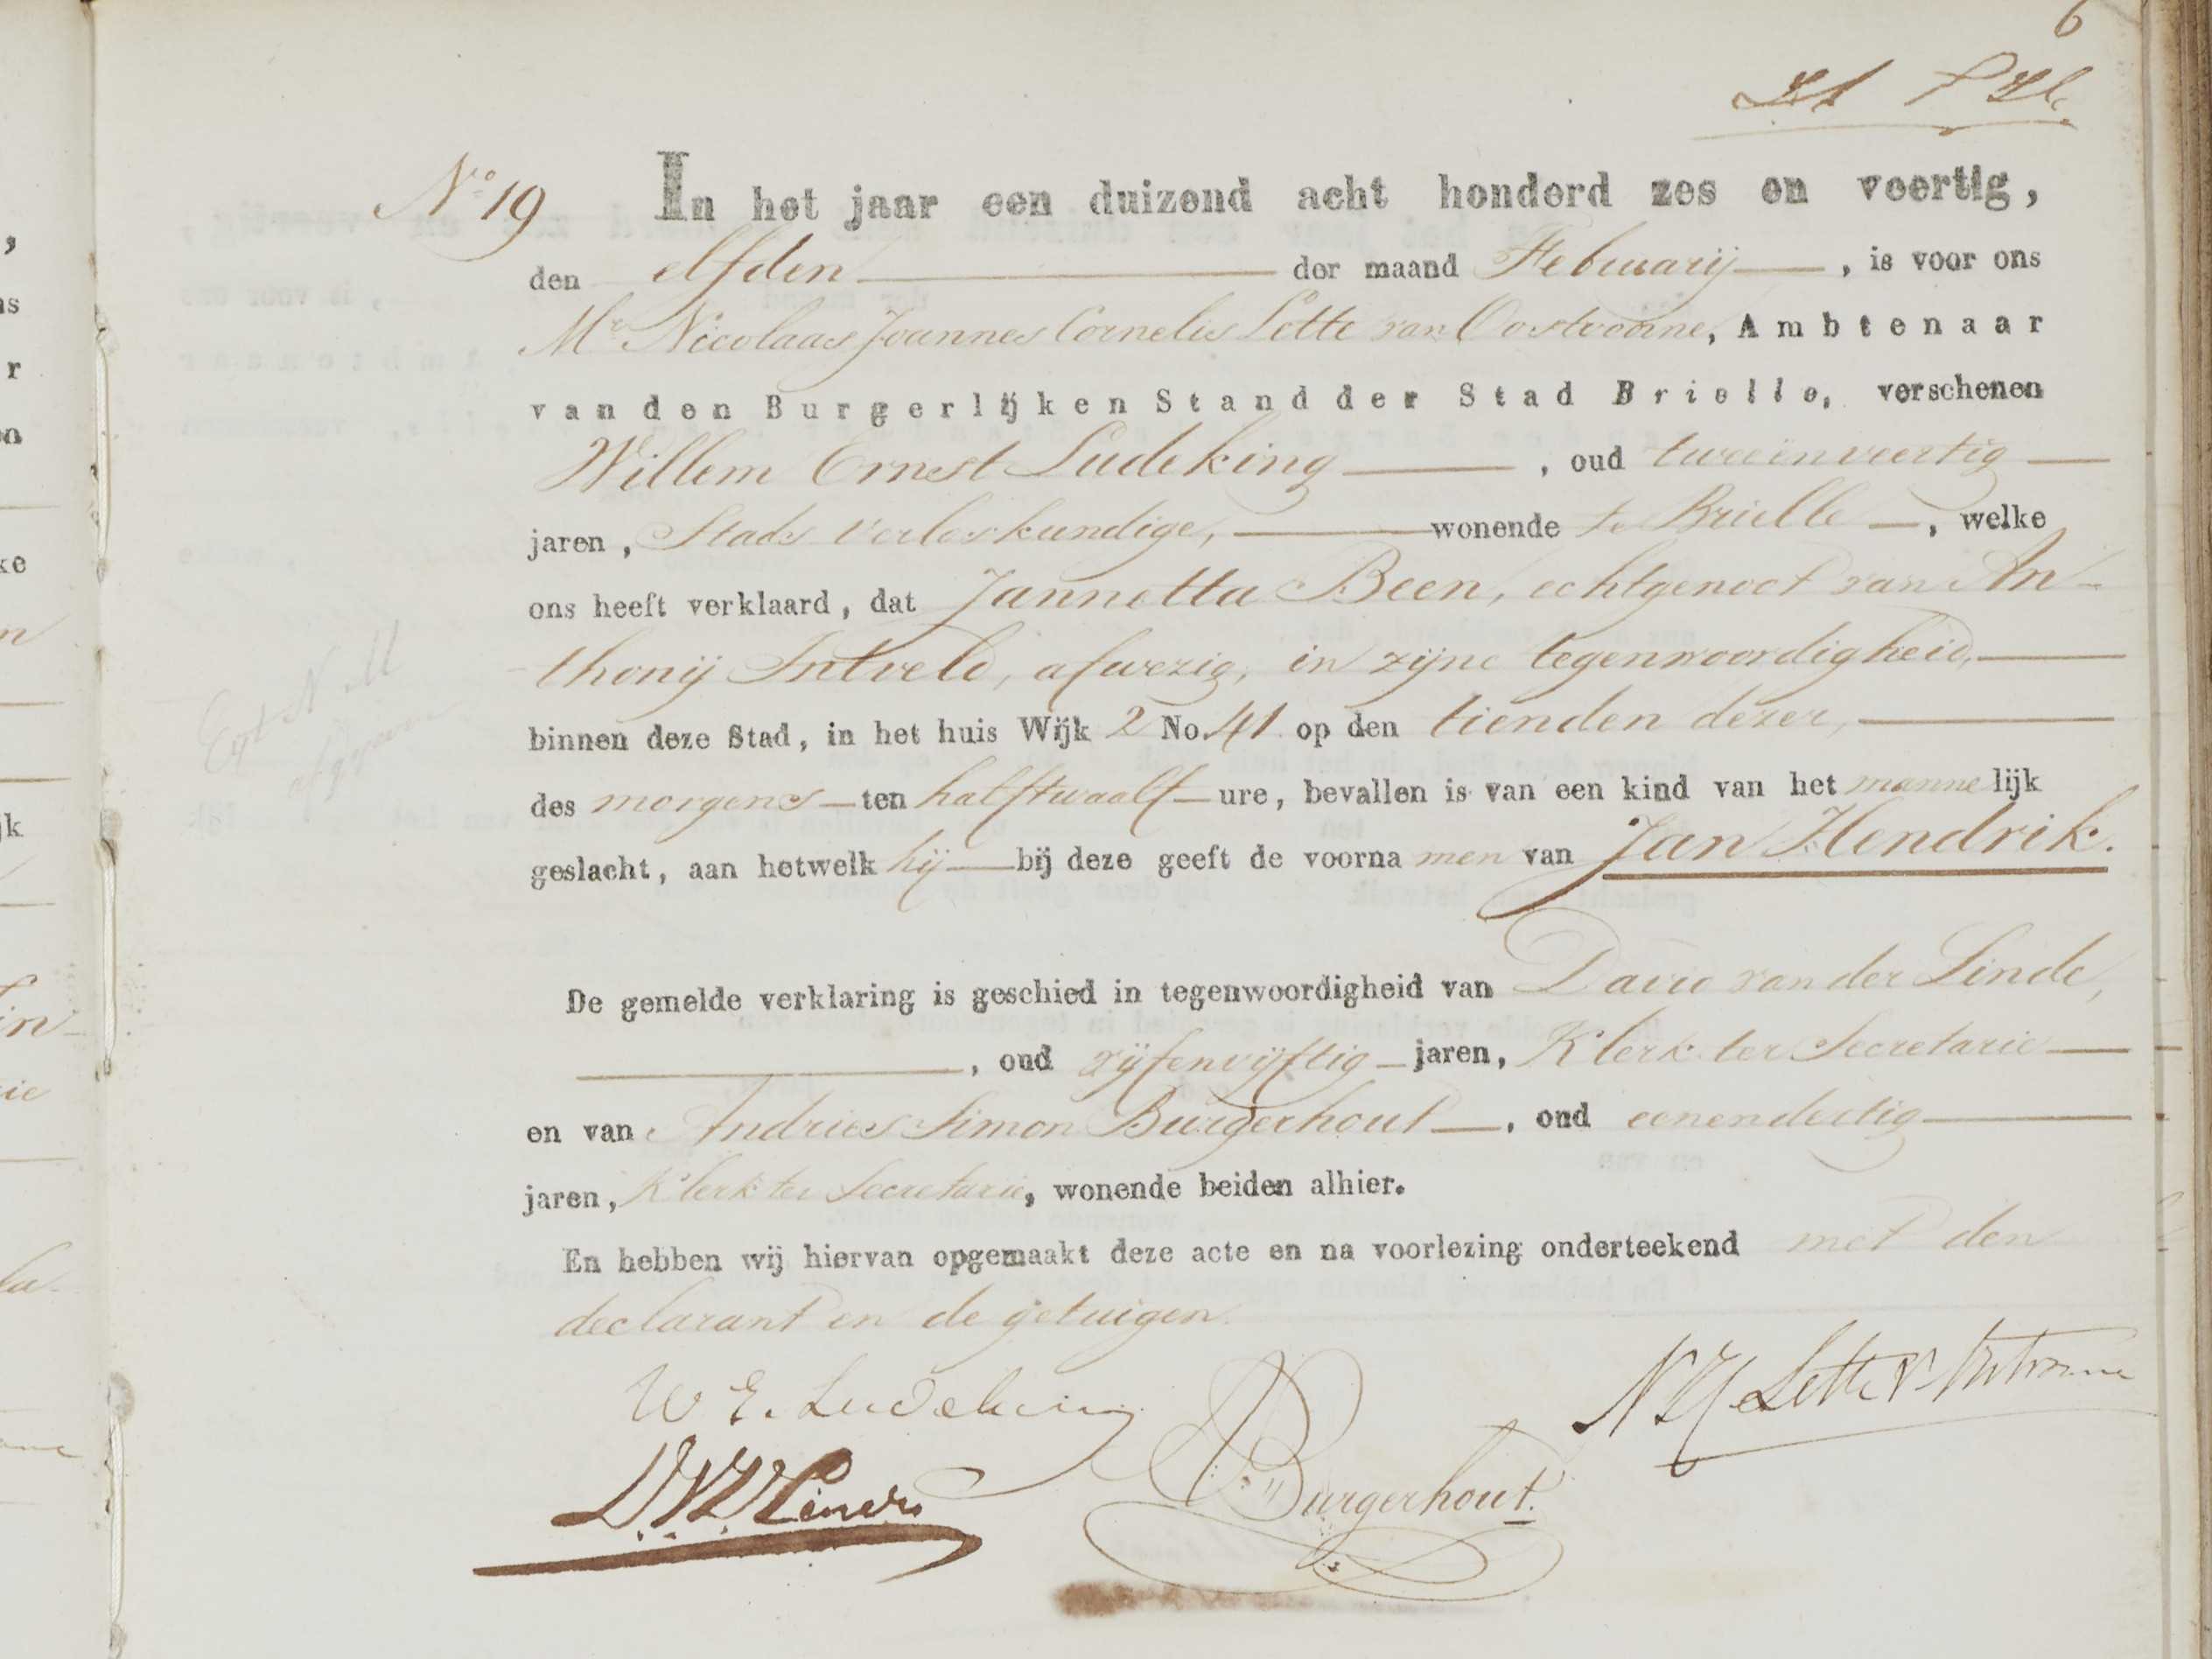 6
No 19 In het jaar een duizend acht honderd zes en veertig,
den elfden der maand Februarij, is voor ons
Mr Nicolaas Joannes Cornelis Lette van Oostvoorne, Ambtenaar
van den Burgerlijken Stand der Stad Brielle, verschenen
Willem Ernest Ludeking, oud tweeënveertig
jaren, Stads Verloskundige, wonende te Brielle, welke
ons heeft verklaard, dat Jannetta Been, echtgenoot van An-
thonij Intveld, afwezig, in zijne tegenwoordigheid,
binnen deze Stad, in het huis Wijk 2 No. 41 op den tienden dezer,
des morgens ten halftwaalf ure, bevallen is van een kind van het mannelijk
geslacht, aan hetwelk hij bij deze geeft de voornamen van Jan Hendrik.
De gemelde verklaring is geschied in tegenwoordigheid van David van der Linde,
, oud vijfenvijftig jaren, Klerk ter Secretarie
en van Andries Simon Burgerhout, oud eenendertig
jaren, Klerk ter Secretarie, wonende beiden alhier.
En hebben wij hiervan opgemaakt deze acte en na voorlezing onderteekend met den
declarant en de getuigen.
W E. Ludeking
Burgerhout.